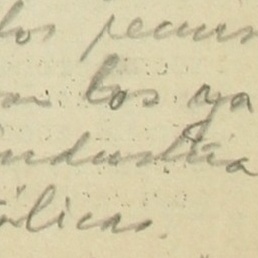 los recurs
los ya
industria
ólicas.